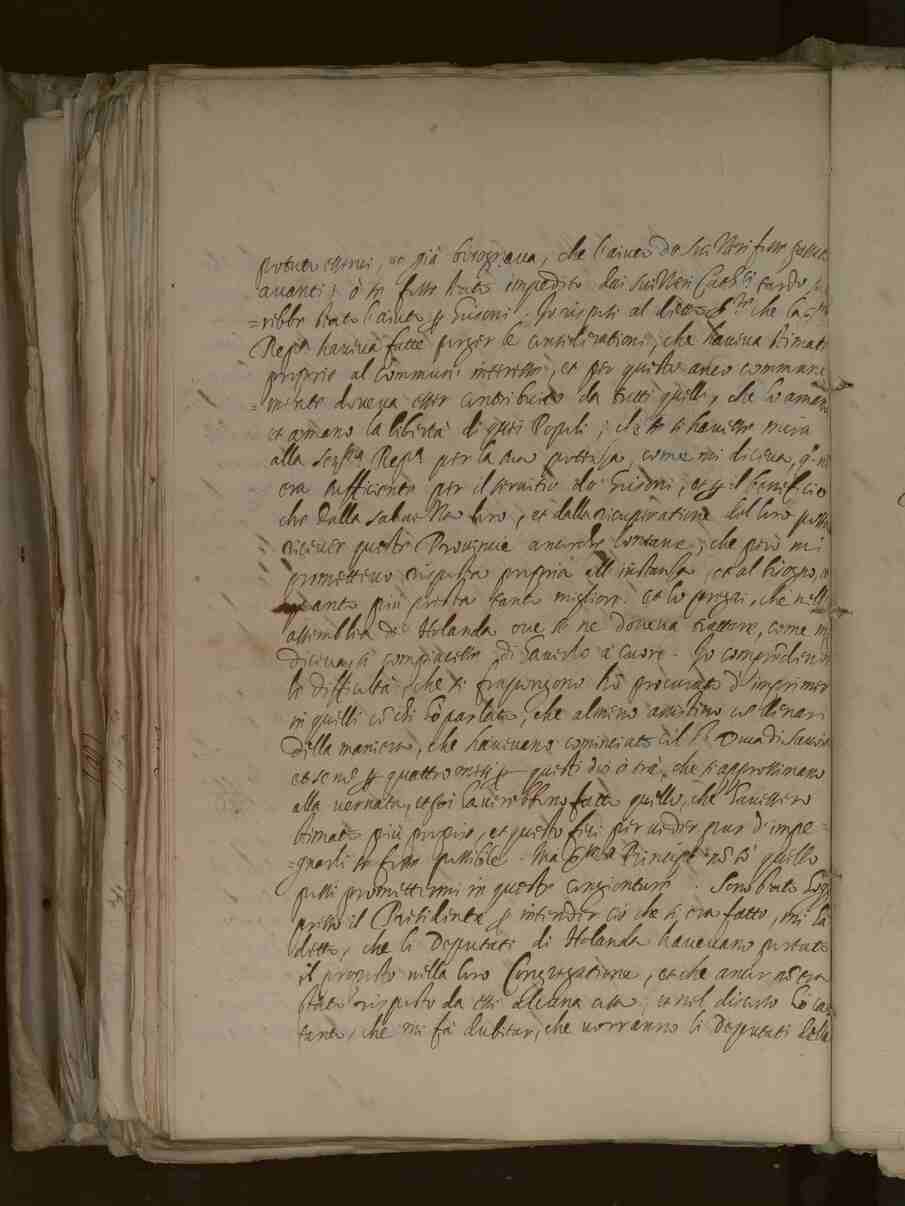 potuto esservi, ne già bisognava, che l'aiuto da Svizzeri fusse
avanti; ò se fusse stato impedito dai Svizzeri Cath.ci tardo
=rebbe stato l'aiuto Grisoni; Io risposi al detto che la
Rep.ca haveva fatte porger le considerationi, che haveva stimate
proprie al commun interesse, et per questo anco commune=
=mente doveva esser contribuito da tutti quelli, che amano
et amano la libertà di quei Popoli; che se si havesse mira
alla Ser.ma Rep.ca per la sua potenza, come mi diceva,
era sufficiente per il servitio de' Grisoni, et il beneficio
che dalla salvatione loro, et dalla ricuperatione del loro
ricever queste Provincie ancorche lontane; che però mi
promettevo risposta propria all'instanza, et al bisogno, et
quanto più presta tanto migliore. et lo pregai, che nell'
assemblea de Holanda ove se ne doveva trattare, come mi
dicevano si compiacesse di haverlo à cuore. Io comprendendo
le difficultà, che si frapongono hò procurato d'imprimer
in quelli cō chi hò parlato, che almeno assistino cō denari
della maniera, che havevano cominciato col S.r Duca di Savoia
et se nō quattro mesi questi doi ò trè, che si approssimano
alla vernata, et poi haverebbono fatto quello, che havessero
stimato più proprio, et questo feci per veder pur d'impe=
=gnarli se fusse possibile. Ma Principe nō sò quello
possi promettermi in queste congionture. Sono stato hoggi
presso il Presidente intender ciò che si era fatto, mi hà
detto, che li Deputati di Holanda havevano portato
il proposto nella loro Congregatione, et che ancor nō era
stato risposto da essi alcuna cosa; et nel discorso hò
che mi fà dubitar, che vorranno li Deputati della